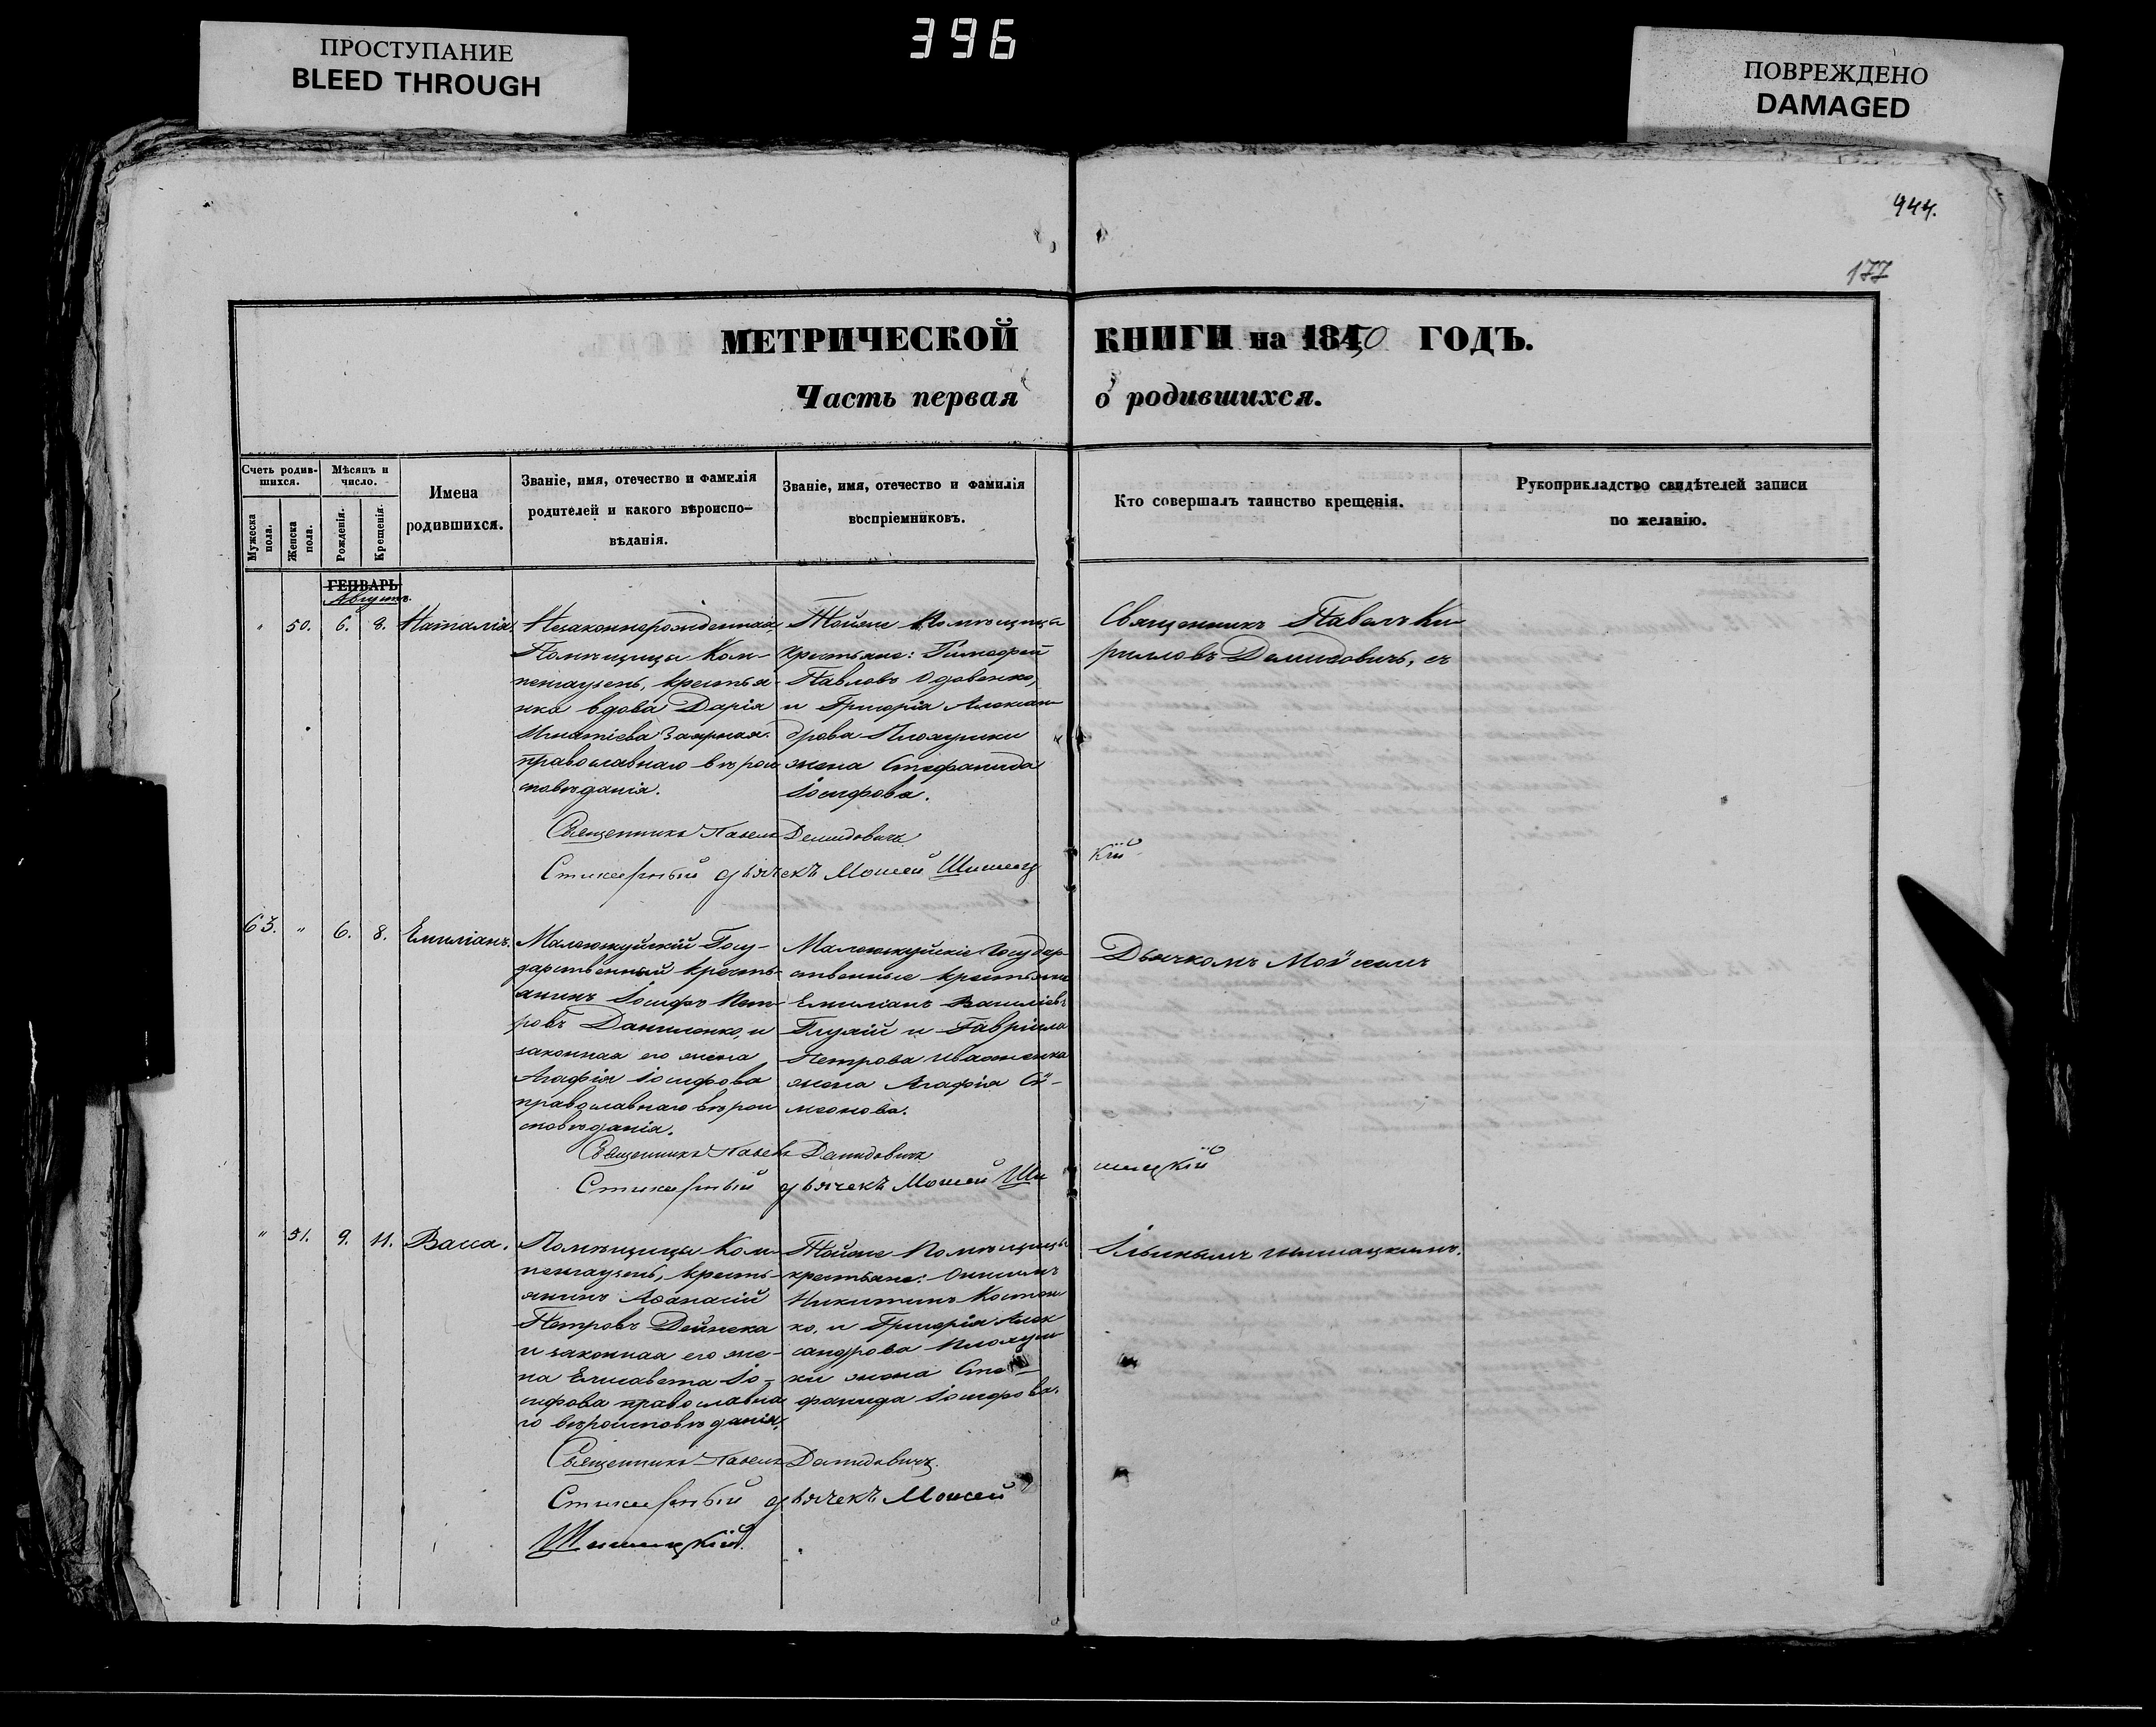 396
ПРОСТУПАНИЕ
BLEED THROUGH
ПОВРЕЖДЕНО
DAMAGED
944.
177
МЕТРИЧЕСКОЙ КНИГИ на 1850 ГОДЪ.
Часть первая о родившихся.
Счетъ родив-
шихся.
Мужеска пола.
Женска пола.
Мѣсяцъ и
число.
Рожденія.
Крещенія.
Имена
родившихся.
Званіе, имя, отечество и фамилія
родителей и какого вѣроиспо-
вѣданія.
Званіе, имя, отечество и фамилія
воспріемниковъ.
Кто совершалъ таинство крещенія.
Рукоприкладство свидѣтелей записи
по желанію.
ГЕНВАРЬ
Августъ.
" 50. 6. 8. Наталія.
Незаконнорожденная,
Помѣщицы Ком-
пенгаузенъ, крестья-
нка вдова Дарія
Игнатіева Заярная.
православнаго вѣрои
сповѣданія.
Тойже Помѣщицы
крестьяне: Тимофей
Павловъ Удовенко,
и Григорія Алексан-
дрова Плохушки
жена Стефанида
Іосифова.
Священникъ Павелъ Ки-
рилловъ Демидовичъ, съ
Священникъ Павелъ Демидовичъ
Стихарный дьячекъ Моисей Шишацкій
63. " 6. 8. Емиліанъ.
Государственный кресть-
янинъ Іосифъ Пет-
ровъ Даниленко, и
законная его жена
Агафія Іосифова
православнаго вѣрои
сповѣданія.
Государ-
ственные крестьяне
Емиліанъ Василіевъ
и Гавріила
Петрова Ивашенка
жена Агафія Сї-
меонова.
Дьячкомъ Мойсеемъ
Священникъ Павелъ Демидовичъ
Стихарный дьячекъ Моисей Шишацкій
" 51. 9. 11. Васса.
Помѣщицы Ком-
пенгаузенъ, кресть-
янинъ Аѳанасій
Петровъ Дейнека
и законная его же-
на Елисавета Іо-
сифова православна
го вѣроисповѣданія.
Тойже Помѣщицы
крестьяне: Онисимъ
Никитинъ Костен
ко, и Григорія Алек
сандрова Плохуш
ки жена Сте-
фанида Іосифова.
Ільинымъ Шишацкимъ.
Священникъ Павелъ Демидовичъ.
Стихарный дьячекъ Моисей
Шишацкій.